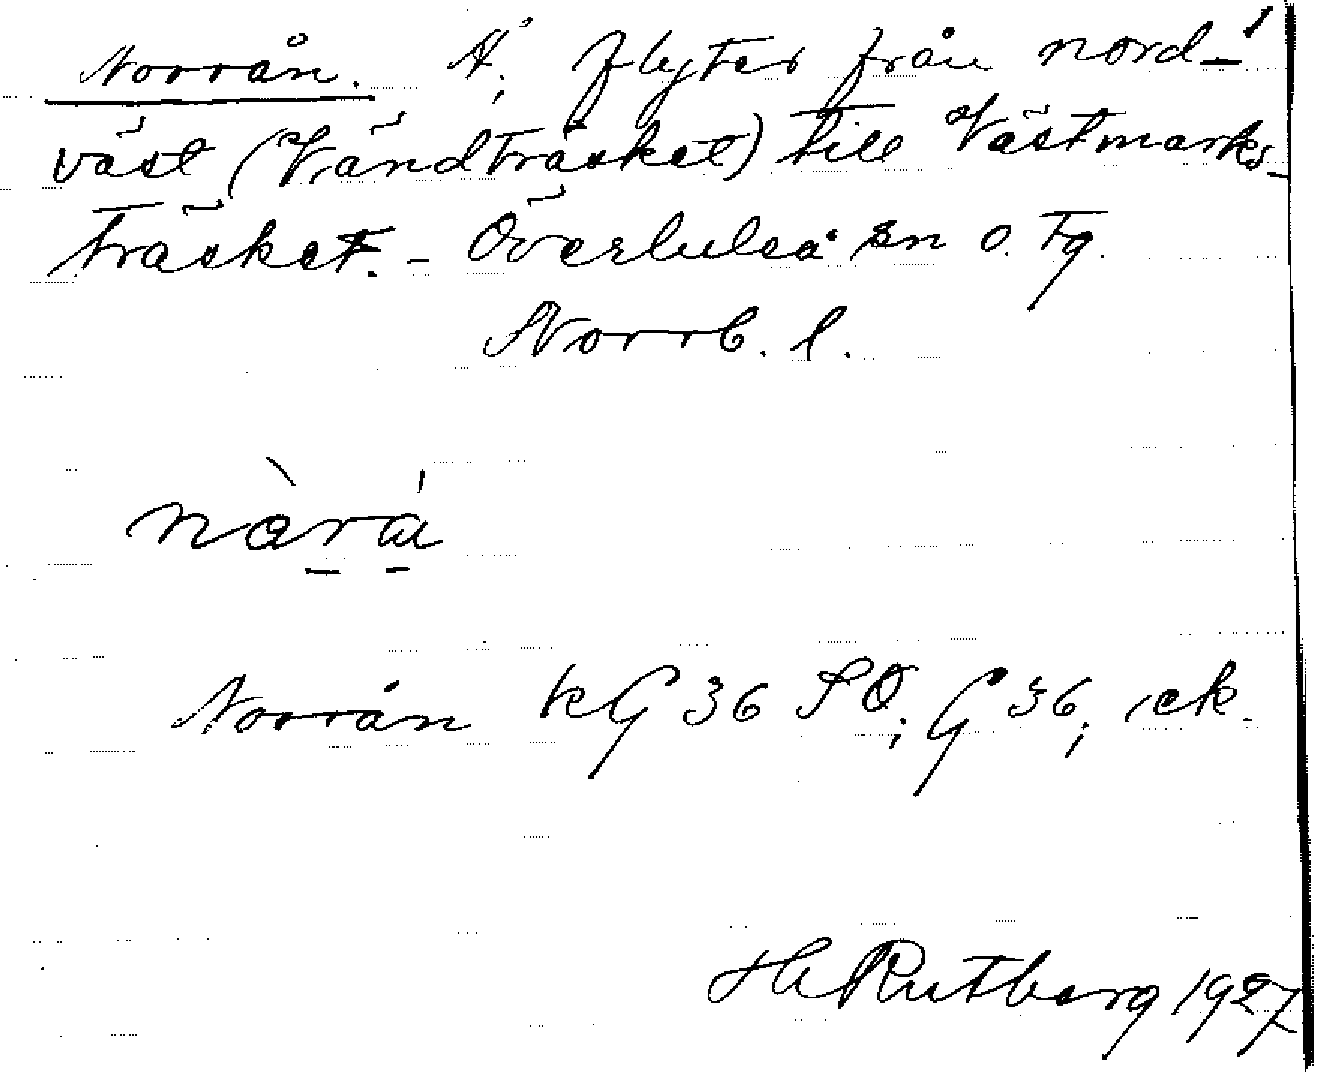 Norrån. Å, flyter från nord-
väst (Vändträsket) till Västmarks-
träsket. - Överluleå sn o. tg.
Norrb. l.
nòrá
Norrån kG 36 SO; G 36; ek.
H Rutberg 1927